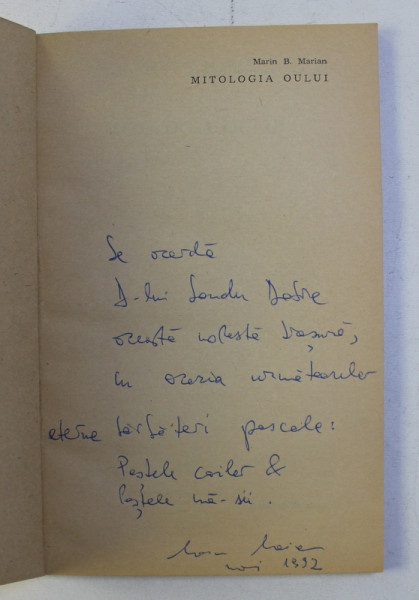 Marin B. Marian
MITOLOGIA OULUI
Se acordă
D-lui Sandu Dobre
această modestă broșură,
cu ocazia următoarelor
eterne sărbători pascale:
Paștele cailor &
Paștele mă-sii.
Marian
mai 1992